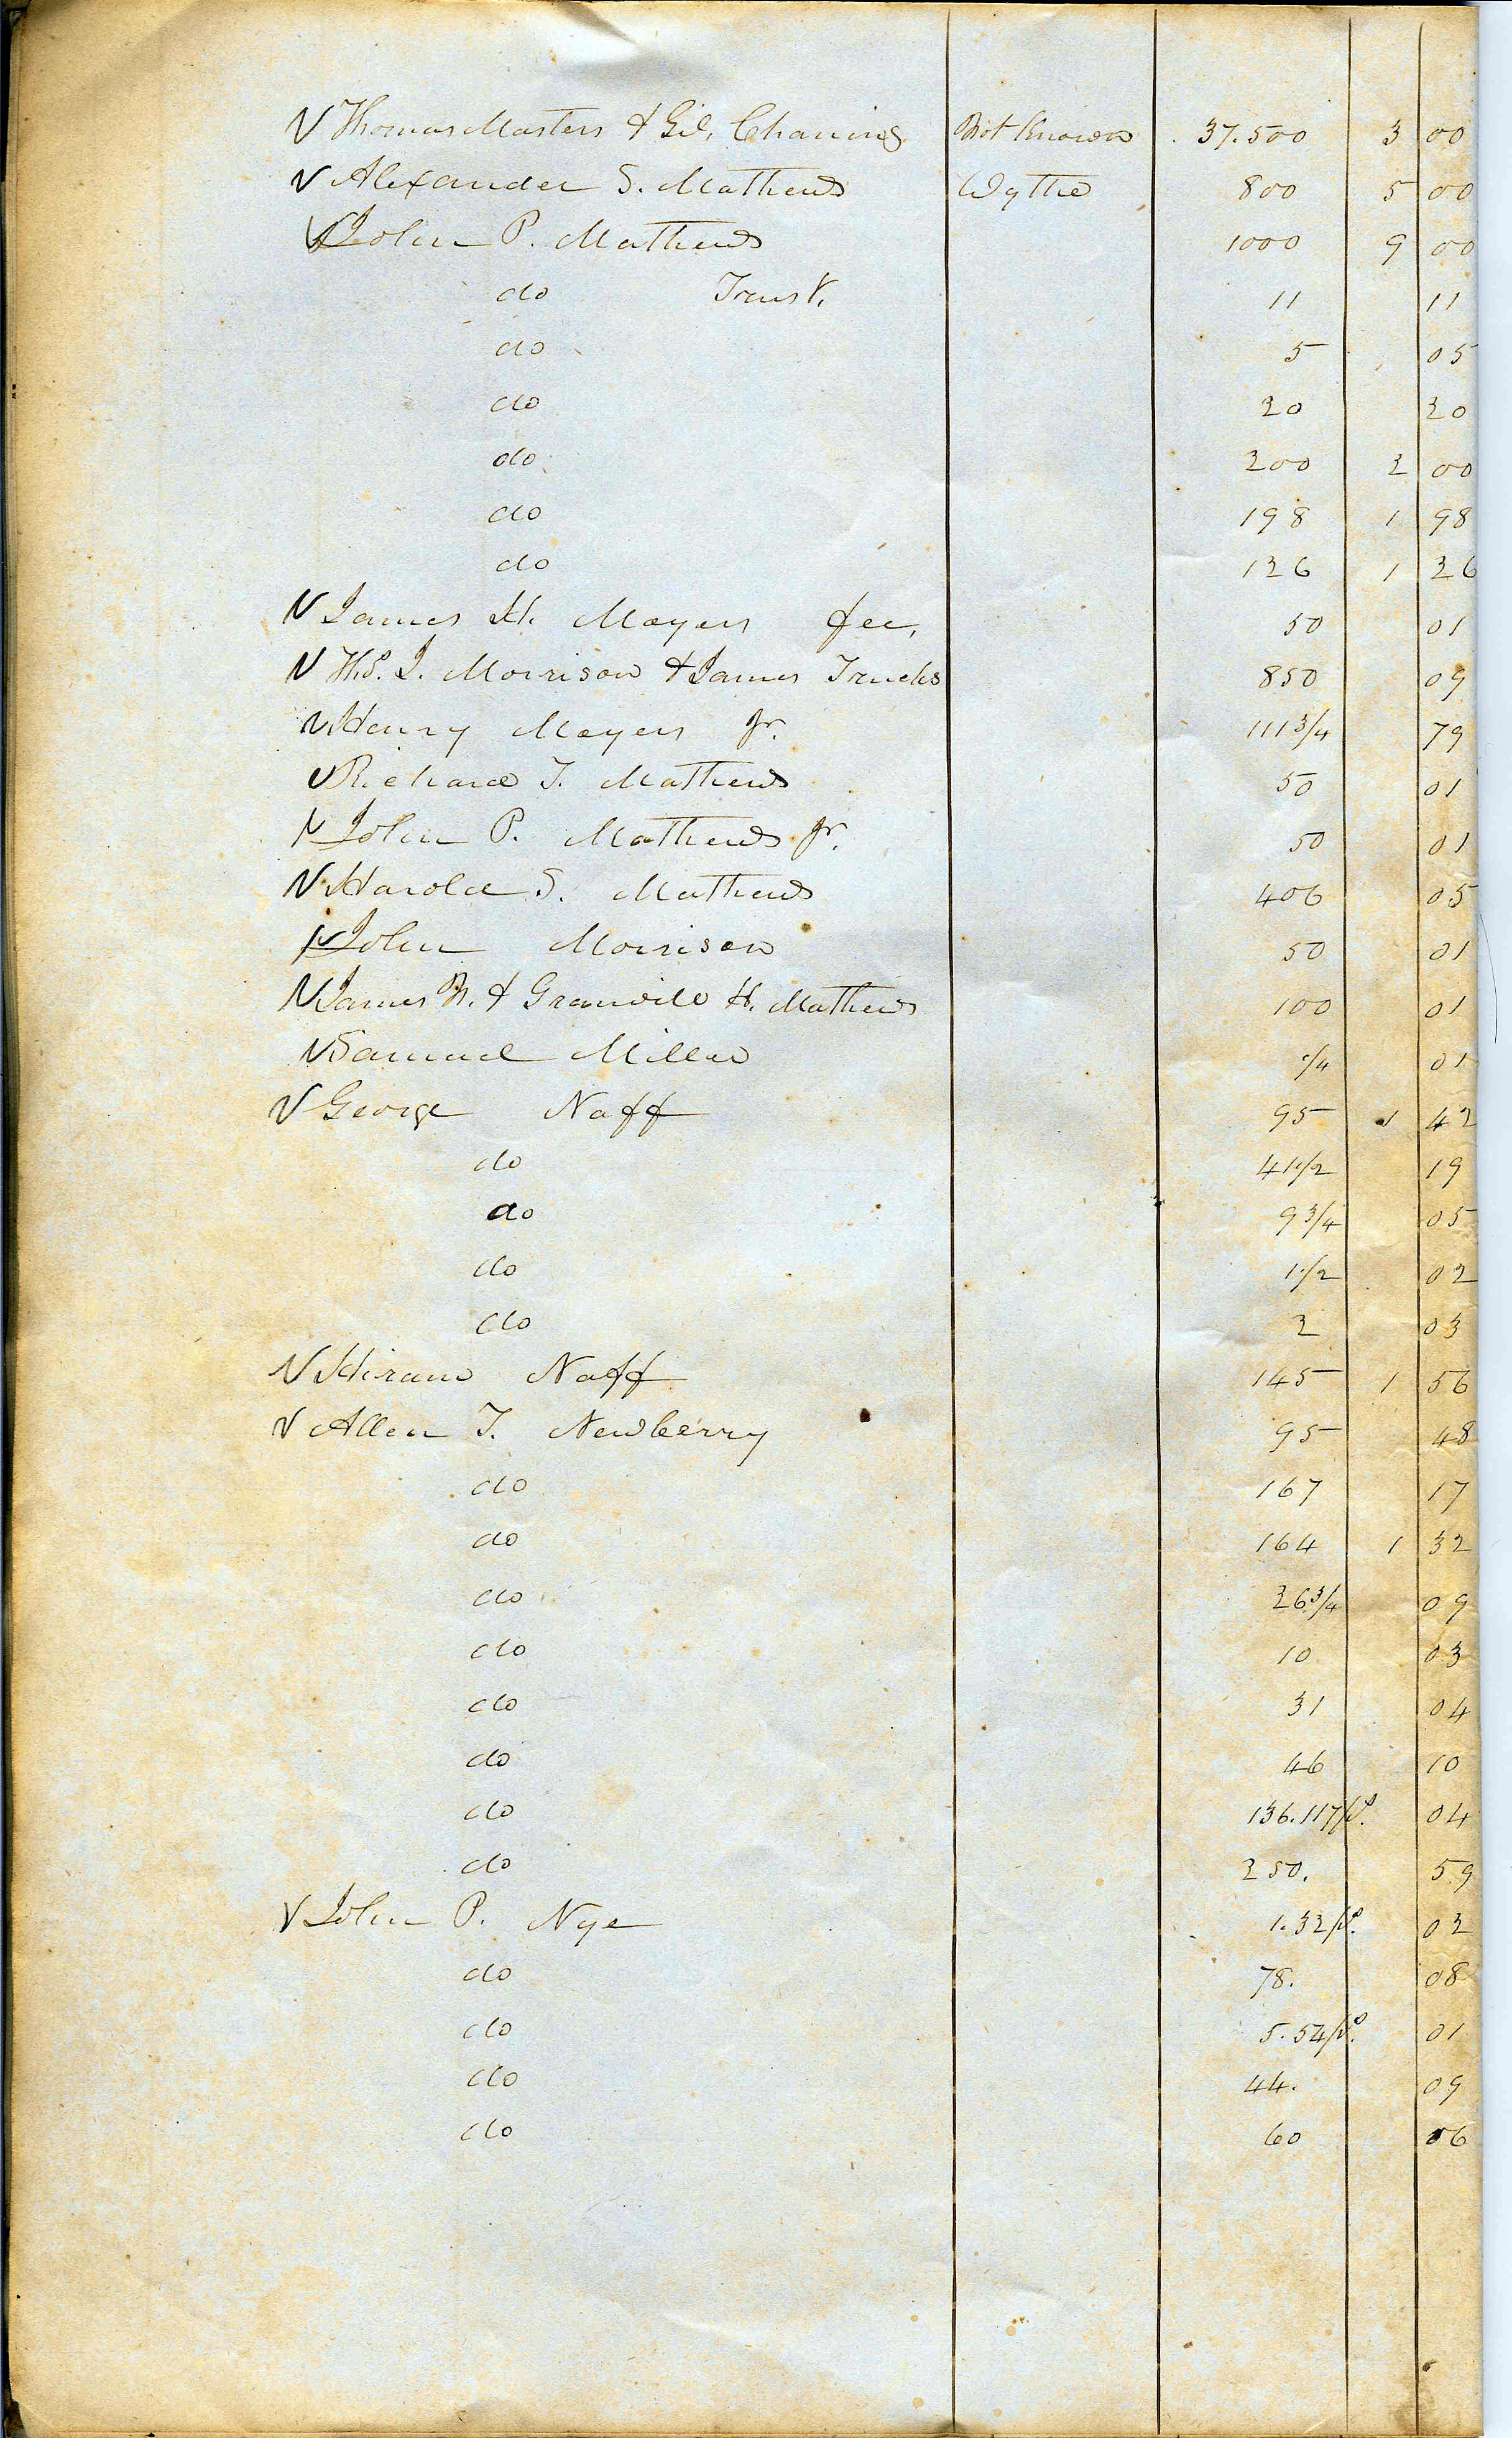 Thomas Masters & Gil. Chaning Not Known 37.500 3 00
Alexander S. Mathews Wythe 800 5 00
John P. Mathews 1000 9 00
do Trust. 11 11
do 5 05
do 20 20
do 200 2 00
do 198 1 98
do 126 1 26
James H. Mayers fee, 50 01
J. Morrison & James 850 09
Henry Mayers Jr. 111 3/4 79
Richard T. Mathews 50 01
John P. Mathews Jr. 50 01
Harold S. Mathews 406 05
John Morrison 50 01
James & Granville H. Mathews 100 01
Samuel Miller 1/4 01
George Naff 95 1 42
do 41 1/2 19
do 9 3/4 05
do 1 1/2 02
do 2 03
Hiram Naff 145 1 56
Allen T. Newberry 95 48
do 167 17
do 164 1 32
do 26 3/4 09
do 10 03
do 31 04
do 46 10
do 136.117 p. 04
do 250. 59
John P. Nye 1.32 p. 02
do 78. 08
do 5.54 p. 01
do 44. 09
do 60 06